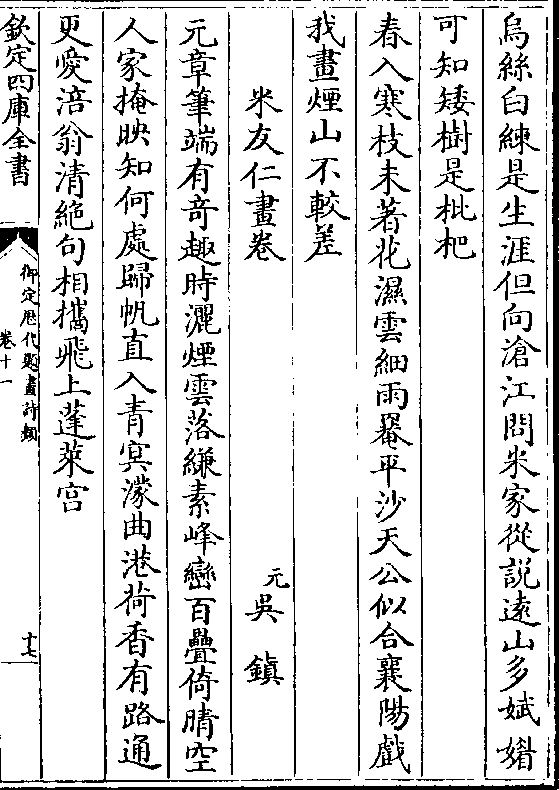 烏絲白練是生涯但向滄江問米家從說遠山多娬媚
可知矮樹是枇杷
春入寒枝未著花濕雲細雨罨平沙天公似合襄陽戲
我畫煙山不較差
米友仁畫卷
元吳鎮
元章筆端有奇趣時灑煙雲落縑素峰巒百疊倚晴空
人家掩映知何處歸帆直入青冥濛曲港荷香有路通
更愛涪翁清絶句相攜飛上蓬萊宫
欽定四庫全書
御定歷代題畫詩類
卷十一
十七